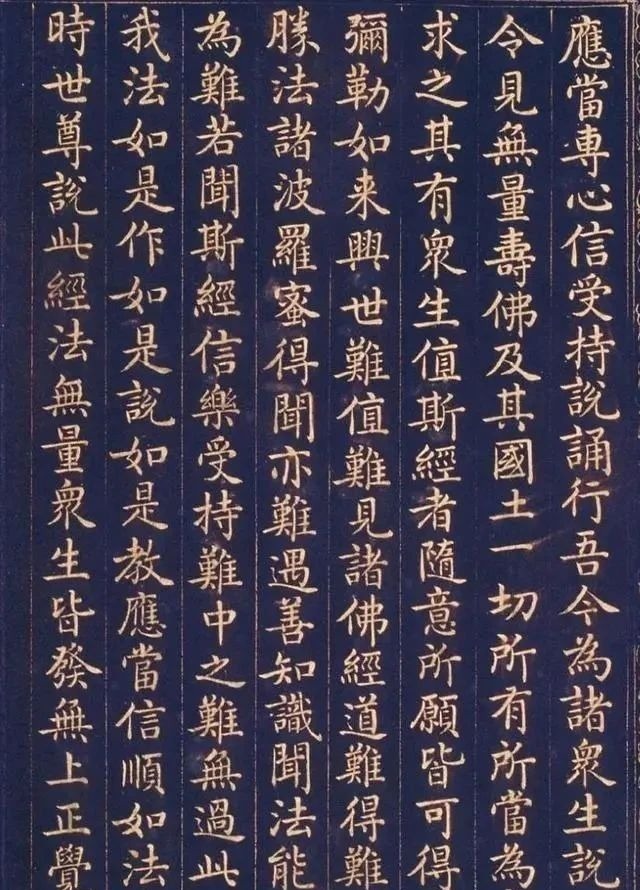 應當専心信受持説誦行吾今為諸衆生説
令見無量壽佛及其國土一切所有所當為
求之其有衆生值斯經者隨意所願皆可得
彌勒如来興世難值難見諸佛經道難得難
勝法諸波羅蜜得聞亦難遇善知識聞法能
為難若聞斯經信樂受持難中之難無過此
我法如是作如是説如是教應當信順如法
時世尊説此經法無量衆生皆發無上正覺